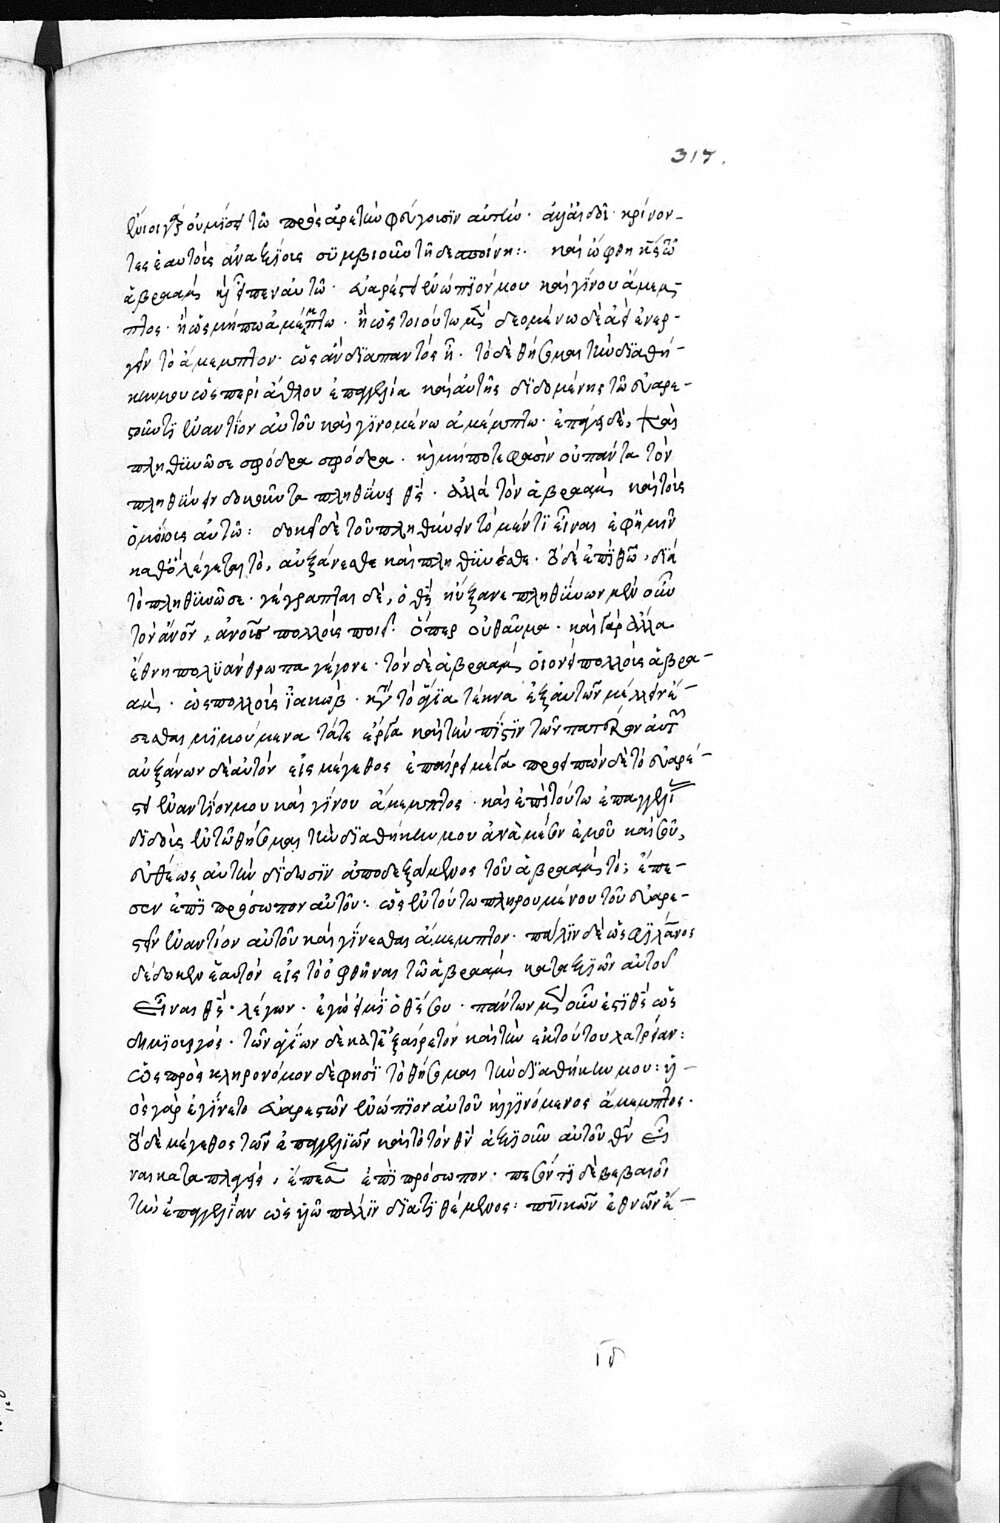 317.
ἔνιοι γὰρ οὐ μίσει τῶ πρὸς ἀρετὴν φεύγουσιν αὐτήν· ἀλλ' αἰδοῖ κρίνον-
τες ἑαυτοὺς ἀναξίους συμβιοῦν τῇ δεσποίνῃ: καὶ ὤφθη κς τῶ
ἀβραὰμ καὶ εἶπεν αὐτῶ· εὐαρέστει ἐνώπιόν μου καὶ γίνου ἄμεμ-
πτος· ἢ ὡς μήπω ἀμέμπτω· ἢ ὡς τοιούτω μὲν δεομένω δὲ ἀεὶ ἐνερ-
γεῖν τὸ ἄμεμπτον· ὡς ἂν διαπαντὸς ᾖ· τὸ δὲ θήσομαι τὴν διαθή-
κην μου ὡς περὶ ἄθλου ἐπαγγελία καὶ αὐτῆς διδομένης τῶ εὐαρε-
στοῦντι ἐναντίον αὐτοῦ καὶ γινομένω ἀμέμπτω· ἐπάγει δὲ, καὶ
πληθυνῶ σε σφόδρα σφόδρα· καὶ μήποτε φασὶν οὐ πάντα τὸν
πληθύνειν δοκοῦντα πληθύνει θς· ἀλλὰ τὸν ἀβραὰμ καὶ τοὺς
ὁμοίους αὐτῶ: δοκεῖ δὲ τοῦ πληθύνειν τὸ μέν τι εἶναι ἐφ' ἡμῖν
καθ' ὃ λέγεται τὸ, αὐξάνεσθε καὶ πληθύνεσθε· τὸ δὲ ἐπὶ θῶ, διὰ
τὸ πληθυνῶ σε· γέγραπται δὲ, ὁ θς ηὔξανε πληθύνων μὲν οὖν
τὸν ἄνον, ἀνους πολλοὺς ποιεῖ· ὅπερ οὐ θαῦμα· καὶ γὰρ ἄλλα
ἔθνη πολυάνθρωπα γέγονε· τὸν δὲ ἀβραὰμ οἱονεὶ πολλοὺς ἀβρα-
ὰμ· ὡς πολλοὺς ἰακὼβ· κατὰ τὸ ἅγια τέκνα ἐξ αὐτῶν μέλλειν ἔ-
σεσθαι μιμούμενα τά τε ἔργα καὶ τὴν πίστιν τῶν πατέρων αὐτῶν
αὐξάνων δὲ αὐτὸν εἰς μέγεθος ἐπαίρει μέγα προειπὼν δὲ τὸ εὐαρέ-
στει ἐναντίον μου καὶ γίνου ἄμεμπτος· καὶ ἐπὶ τούτω ἐπαγγελίαν
διδοὺς ἐν τῶ θήσομαι τὴν διαθήκην μου ἀνὰ μέσον ἐμοῦ καὶ σοῦ,
εὐθέως αὐτὴν δίδωσιν ἀποδεξάμενος τοῦ ἀβραὰμ τὸ; ἔπε-
σεν ἐπὶ πρόσωπον αὐτοῦ: ὡς ἐν τούτω πληρουμένου τοῦ εὐαρε-
στεῖν ἐναντίον αὐτοῦ καὶ γίνεσθαι ἄμεμπτον· πάλιν δὲ ὡς φιλάνος
δέδωκεν ἑαυτὸν εἰς τὸ ὀφθῆναι τῶ ἀβραὰμ καταξιῶν αὐτοῦ
εἶναι θς· λέγων· ἐγώ εἰμι ὁ θς σου· πάντων μὲν οὖν ἐστι θς ὡς
δημιουργός· τῶν ἁγίων δὲ κατ' ἐξαίρετον καὶ τὴν ἐκ τούτου λατρείαν:
ὡς πρὸς κληρονόμον δὲ φησὶ τὸ θήσομαι τὴν διαθήκην μου: ἤ-
σει γὰρ ἐγίνετο εὐαρεστῶν ἐνώπιον αὐτοῦ καὶ γινόμενος ἄμεμπτος·
τὸ δὲ μέγεθος τῶν ἐπαγγελιῶν καὶ τὸ τὸν θν ἀξιοῦν αὐτοῦ θν εἶ-
ναι καταπλαγεὶς, ἔπεσεν ἐπὶ πρόσωπον· πεσόντι δὲ βεβαιοῖ
τὴν ἐπαγγελίαν ὡς υἱῶ πάλιν διατιθέμενος: πνικῶν ἐθνῶν ἐ-
ιδ